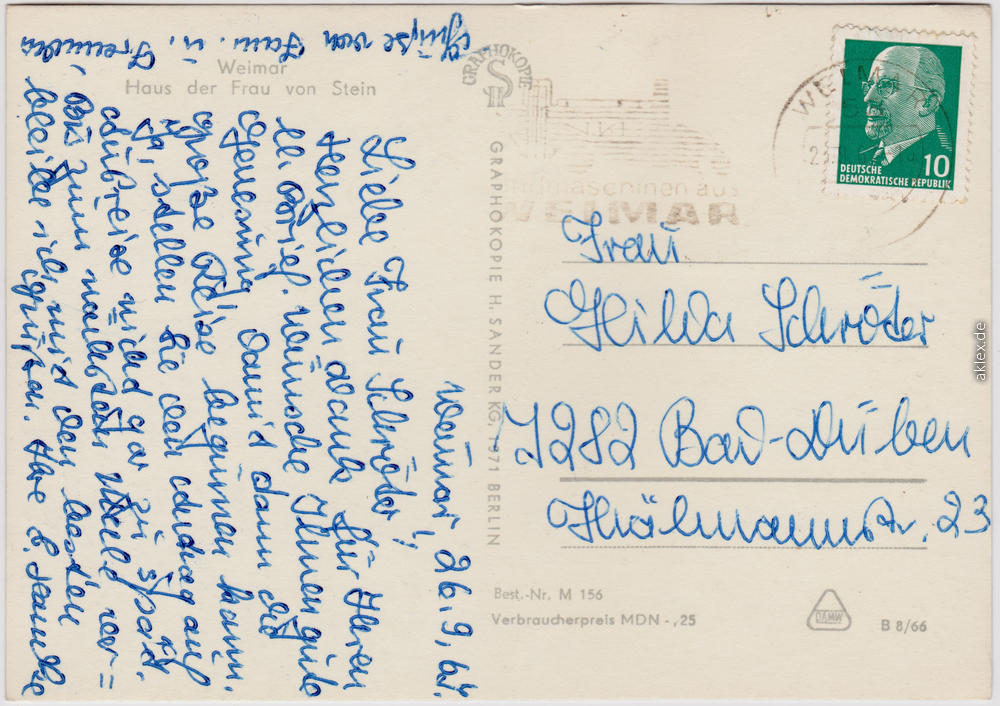 Weimar
Haus der Frau von Stein
Weimar, 26. 9. 67.
Liebe Frau Schröder!
Herzlichen Dank für Ihren
lb. Brief. wünsche Ihnen gute
Genesung, damit dann die
große Reise beginnen kann.
Ja, stellen Sie den Antrag auf
nicht gar zu spät.
Bis zum nächsten
bleibe ich mit den besten
Grüßen. Ihre
Grüße von Fam. u. Freunden
GRAPHOKOPIE
GRAPHOKOPIE H. SANDER KG, 1971 BERLIN
Landmaschinen aus
WEIMAR
WEIMAR
DEUTSCHE
DEMOKRATISCHE REPUBLIK
10
Frau
Hilda Schröder
7282 Bad-Düben
Thälmannstr. 23
Best.-Nr. M 156
Verbraucherpreis MDN -,25
DAMW
B 8/66
aklex.de